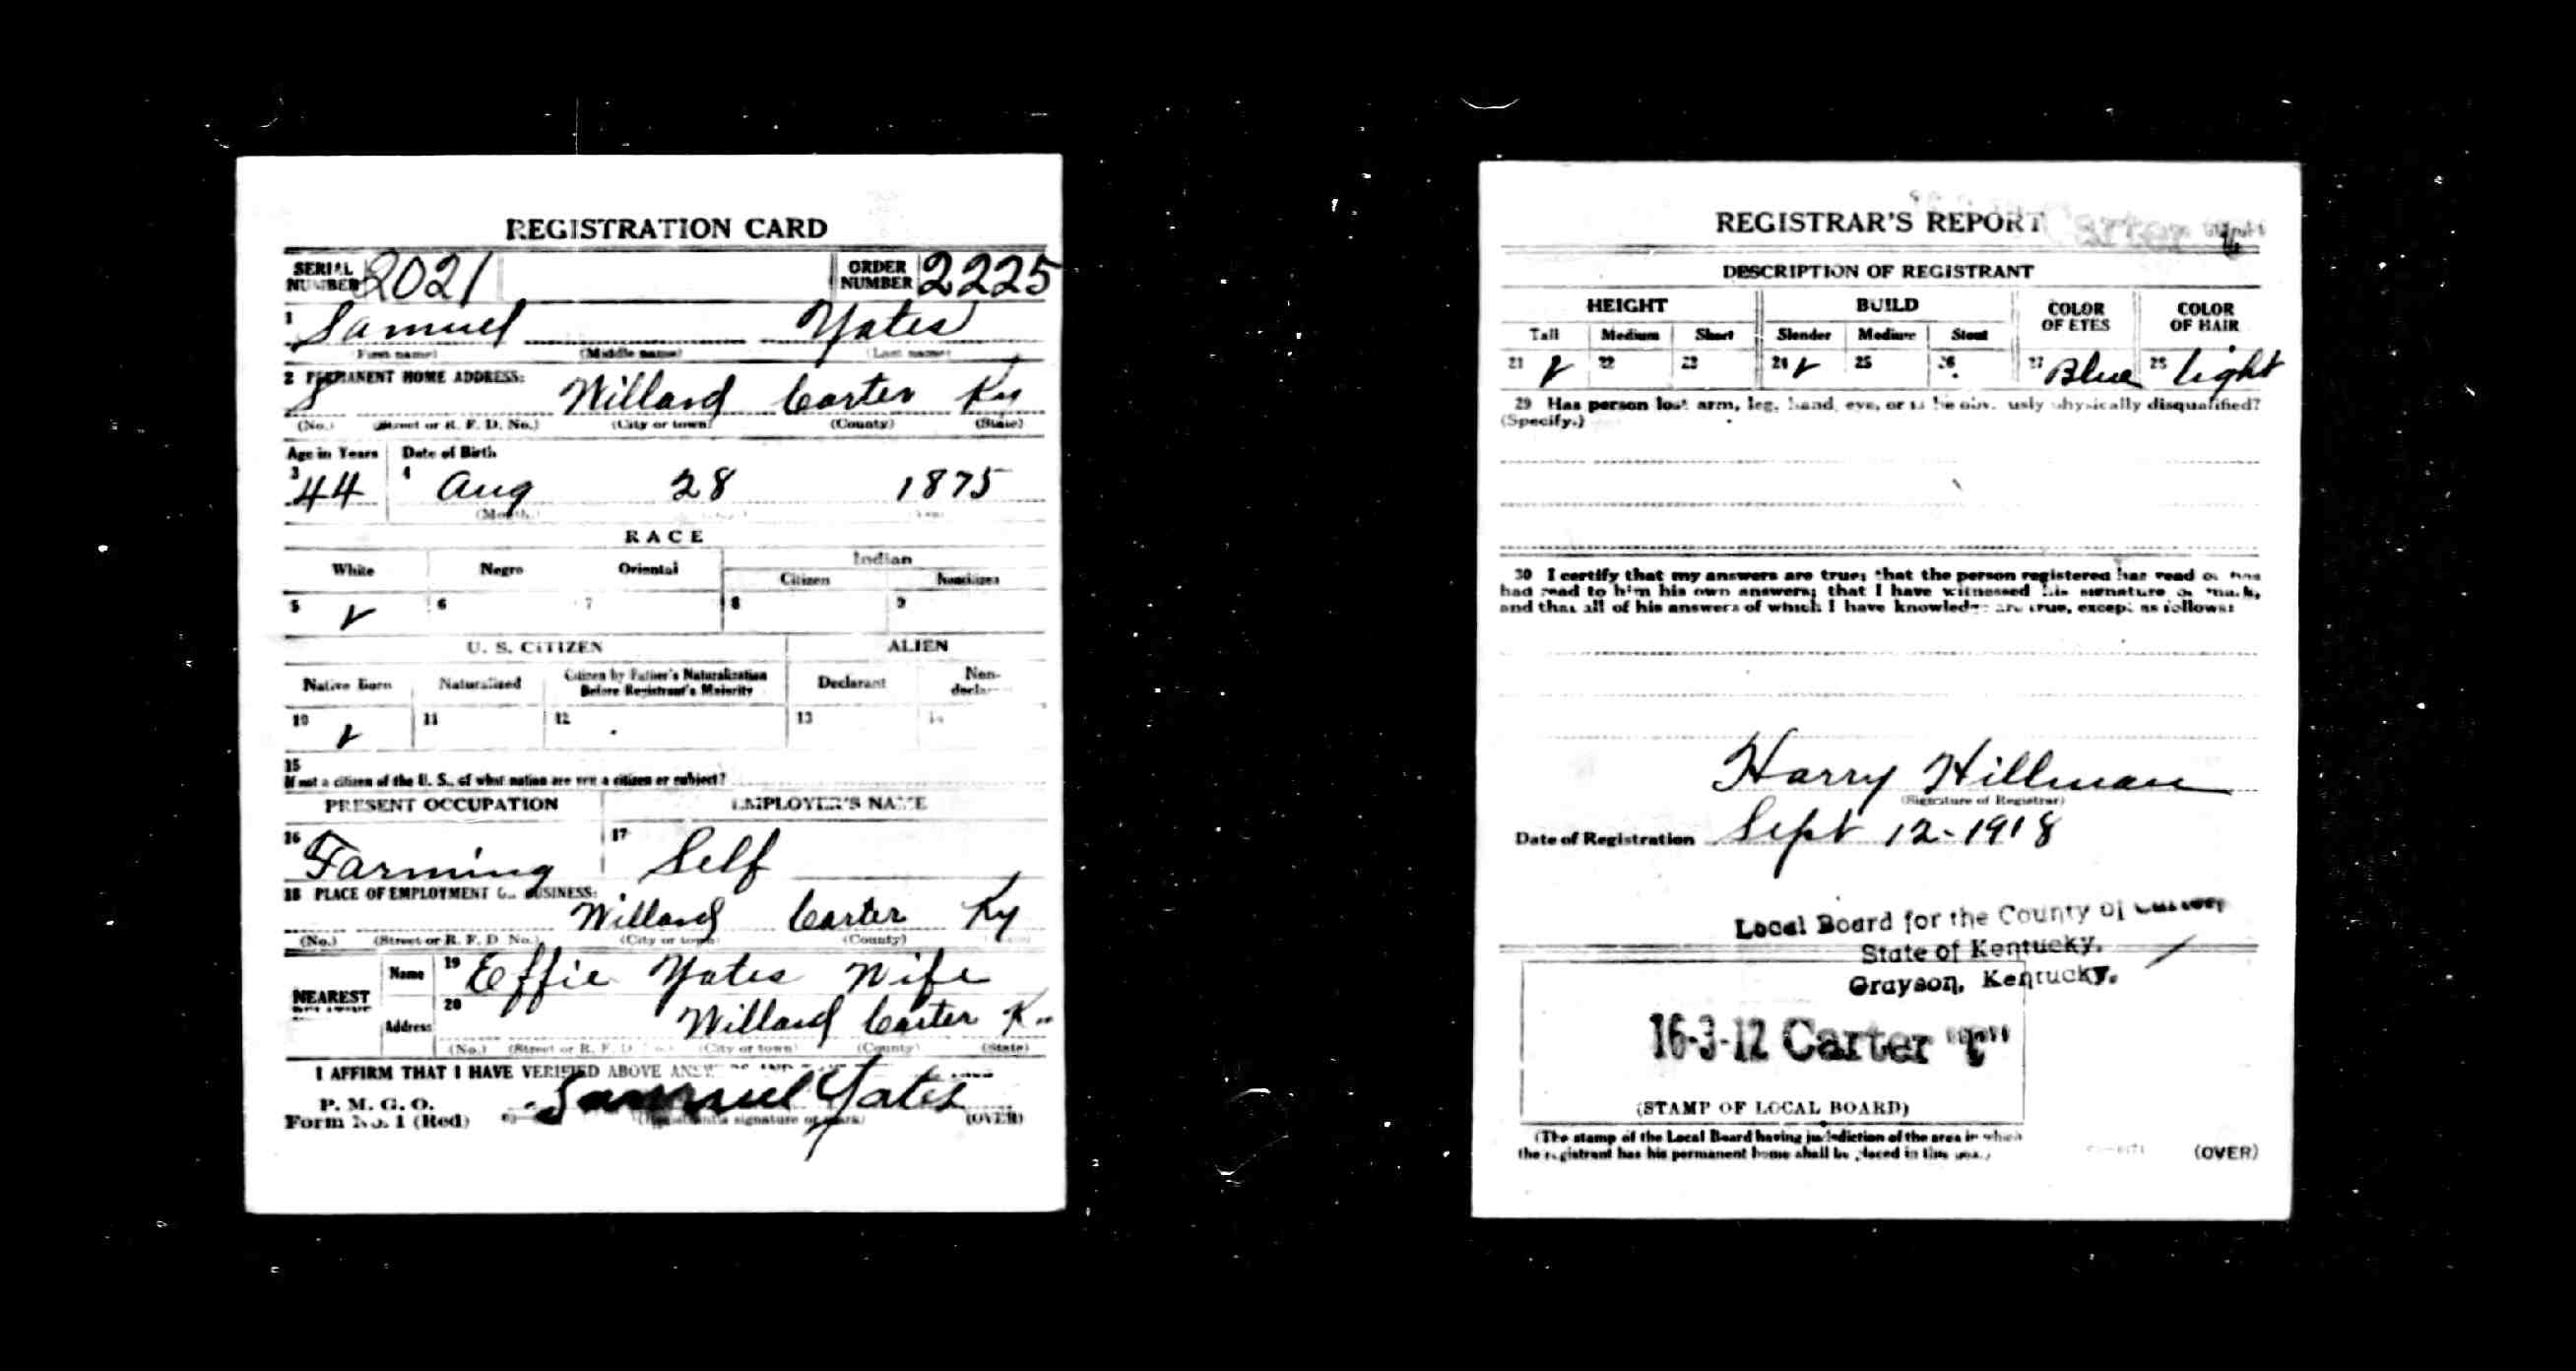 REGISTRATION CARD
SERIAL NUMBER 2021 ORDER NUMBER 2225
1 Samuel Yates
(First name) (Middle name) (Last name)
2 PERMANENT HOME ADDRESS:
Willard Carter Ky
(No.) (Street or R. F. D. No.) (City or town) (County) (State)
Age in Years Date of Birth
3 44 4 Aug 28 1875
(Month.)
RACE
White Negro Oriental Indian
Citizen Noncitizen
5 6 7 8 9
U. S. CITIZEN ALIEN
Native Born Naturalized Citizen by Father's Naturalization Before Registrant's Majority Declarant Non-
10 11 12 13 14
15
If not a citizen of the U. S., of what nation are you a citizen or subject?
PRESENT OCCUPATION EMPLOYER'S NAME
16 Farming 17 Self
18 PLACE OF EMPLOYMENT BUSINESS:
Willard Carter Ky
(No.) (Street or R. F. D. No.) (City or town) (County)
NEAREST Name 19 Effie Yates Wife
Address 20 Willard Carter
(No.) (Street or R. F. D. (City or town) (County) (State)
I AFFIRM THAT I HAVE VERIFIED ABOVE
P. M. G. O.
Form No. 1 (Red) Samuel Yates (OVER)
(Registrant's signature or mark)
REGISTRAR'S REPORT
DESCRIPTION OF REGISTRANT
HEIGHT BUILD COLOR OF EYES COLOR OF HAIR
Tall Medium Short Slender Medium Stout
21 22 23 24 25 26 27 Blue 28 light
29 Has person lost arm, leg, hand, eye, or is he obviously physically disqualified?
(Specify.)
30 I certify that my answers are true; that the person registered has read or has
had read to him his own answers; that I have witnessed his signature or mark,
and that all of his answers of which I have knowledge are true, except as follows:
Harry Hillman
(Signature of Registrar)
Date of Registration Sept 12-1918
Local Board for the County of Carter,
State of Kentucky.
Grayson, Kentucky.
16-3-12 Carter "C"
(STAMP OF LOCAL BOARD)
(The stamp of the Local Board having jurisdiction of the area in which
the registrant has his permanent home shall be placed in this box.)
(OVER)